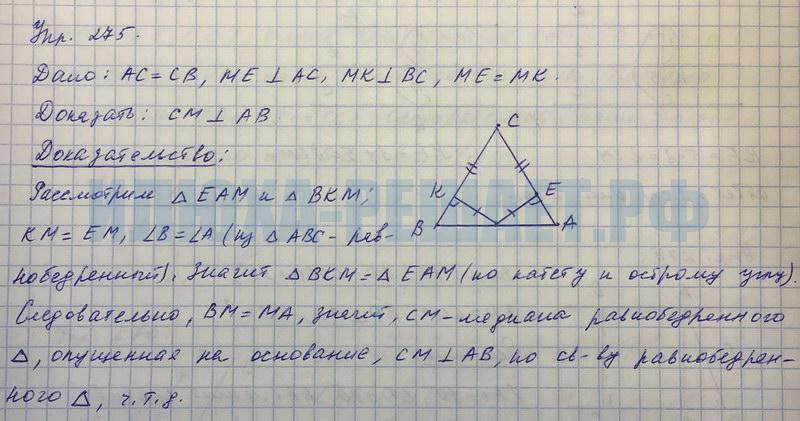 Упр. 275.
Дано: AC = CB, ME ⊥ AC, MK ⊥ BC, ME = MK.
Доказать: CM ⊥ AB
Доказательство:
Рассмотрим △ EAM и △ BKM;
KM = EM, ∠B = ∠A (из △ ABC - рав-
нобедренный). Значит △ BKM = △ EAM (по катету и острому углу).
Следовательно, BM = MA, значит, CM - медиана равнобедренного
△, опущенная на основание, CM ⊥ AB, по св-ву равнобедрен-
ного △, ч.т.д.
C
K
E
B
A